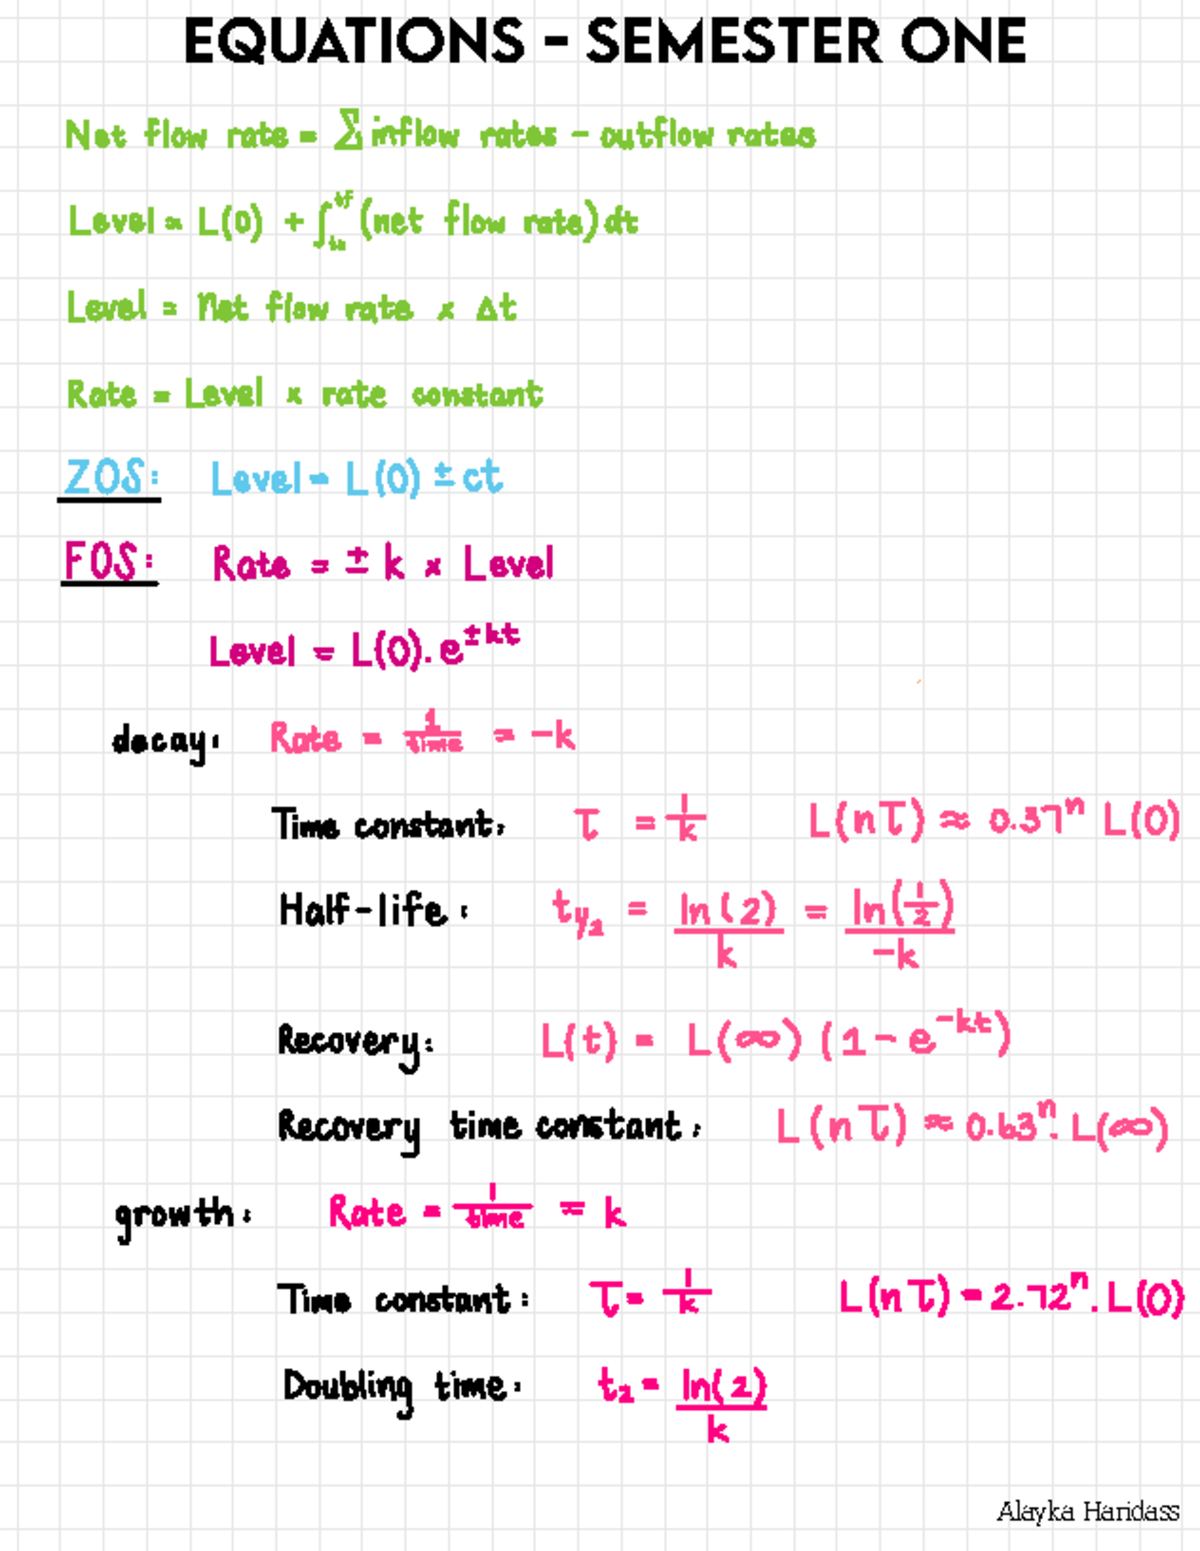 EQUATIONS - SEMESTER ONE
Net flow rate = ∑ inflow rates - outflow rates
Level = L(0) + ∫ₜₒ^tf (net flow rate) dt
Level = Net flow rate × Δt
Rate = Level × rate constant
ZOS: Level = L(0) ± ct
FOS: Rate = ± k × Level
Level = L(0). e^±kt
decay: Rate = 1/time = -k
Time constant: τ = 1/k L(nτ) ≈ 0.37ⁿ L(0)
Half-life: t½ = ln(2)/k = ln(1/2)/-k
Recovery: L(t) = L(∞) (1 - e^-kt)
Recovery time constant: L(nτ) ≈ 0.63ⁿ. L(∞)
growth: Rate = 1/time = k
Time constant: τ = 1/k L(nτ) = 2.72ⁿ. L(0)
Doubling time: t₂ = ln(2)/k
Alayka Haridass